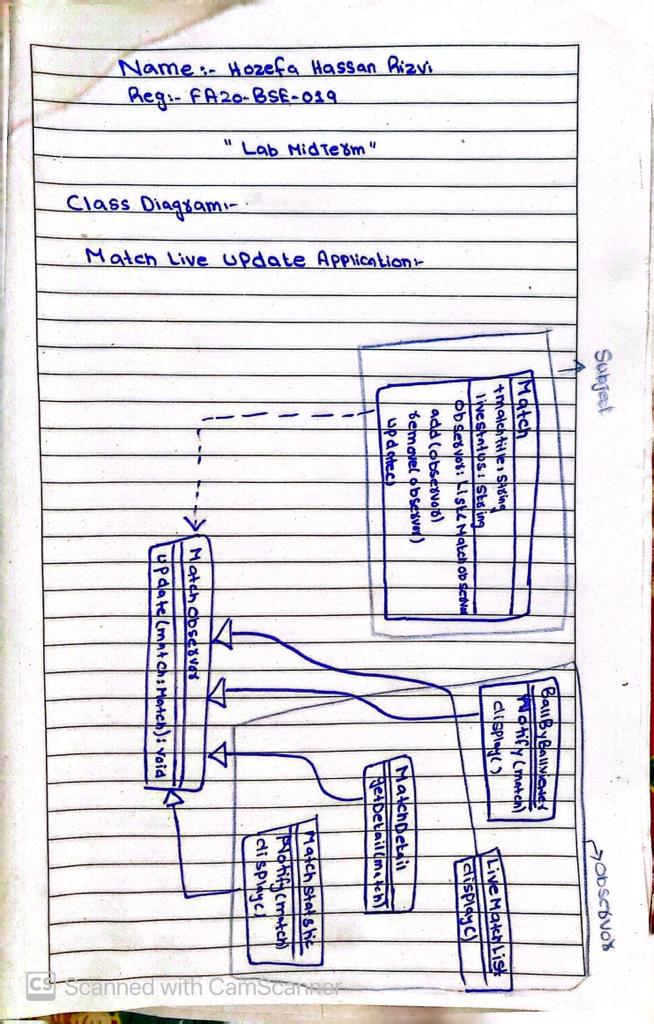 Name:- Hozefa Hassan Rizvi
Reg:- FA20-BSE-019
"Lab MidTerm"
Class Diagram:-
Match Live Update Application:-
Subject
Match
+matchtitle: String
livestatus: String
Observor: List<Matchobservor
add(observor)
remove(observor)
update()
MatchObservor
update(match:Match): void
Observor
BallByBallViewer
Notify(match)
display()
LiveMatchList
display()
MatchDetail
getDetail(match)
MatchStatstic
Notify(match)
display()
CS Scanned with CamScanner